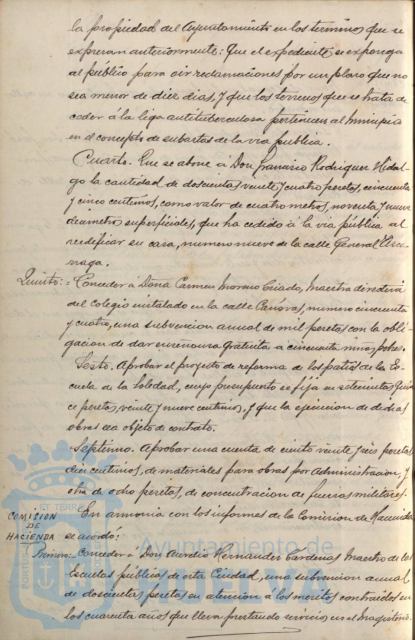 la propiedad del Ayuntamiento en los terminos que se
expresan anteriormente: Que el expediente se exponga
al público para oir reclamaciones por un plazo que no
sea menor de diez dias, y que los terrenos que se trata de
ceder á la liga antituberculosa pertenecen al Municipio
en el concepto de subastas de la via publica.
Cuarto. Que se abone á Don Francisco Rodriguez Hidal-
go la cantidad de doscientas veinte y cuatro pesetas, cincuenta
y cinco centimos, como valor de cuatro metros, noventa y nueve
decimetros superficiales, que ha cedido á la via pública al
reedificar su casa, numero nueve de la calle General
Quinto:= Conceder á Doña Carmen Moreno Criado, maestra directora
del Colegio instalado en la calle Cánovas, numero cincuenta
y cuatro, una subvencion anual de mil pesetas con la obli-
gacion de dar enseñanza gratuita a cincuenta niños pobres.
Sexto. Aprobar el proyecto de reforma de los patios de la Es-
cuela de la Soledad, cuyo presupuesto se fija en setecientas quin
ce pesetas, veinte y nueve centimos, y que la ejecucion de dichas
obras sea objeto de contrato.
Septimo. Aprobar una cuenta de ciento veinte y seis pesetas
diez centimos, de materiales para obras por administracion, y
otra de ocho pesetas, de concentracion de fuerzas militares.
COMISION DE HACIENDA
En armonia con los informes de la Comision de Hacienda
se acordó:
Primero:= Conceder á Don Aurelio Hernandez Cárdenas Maestro de las
Escuelas públicas de esta Ciudad, una subvencion anual
de doscientas pesetas en atencion á los meritos contraidos en
los cuarenta años que lleva prestando servicio en el magisterio
Ayuntamiento de